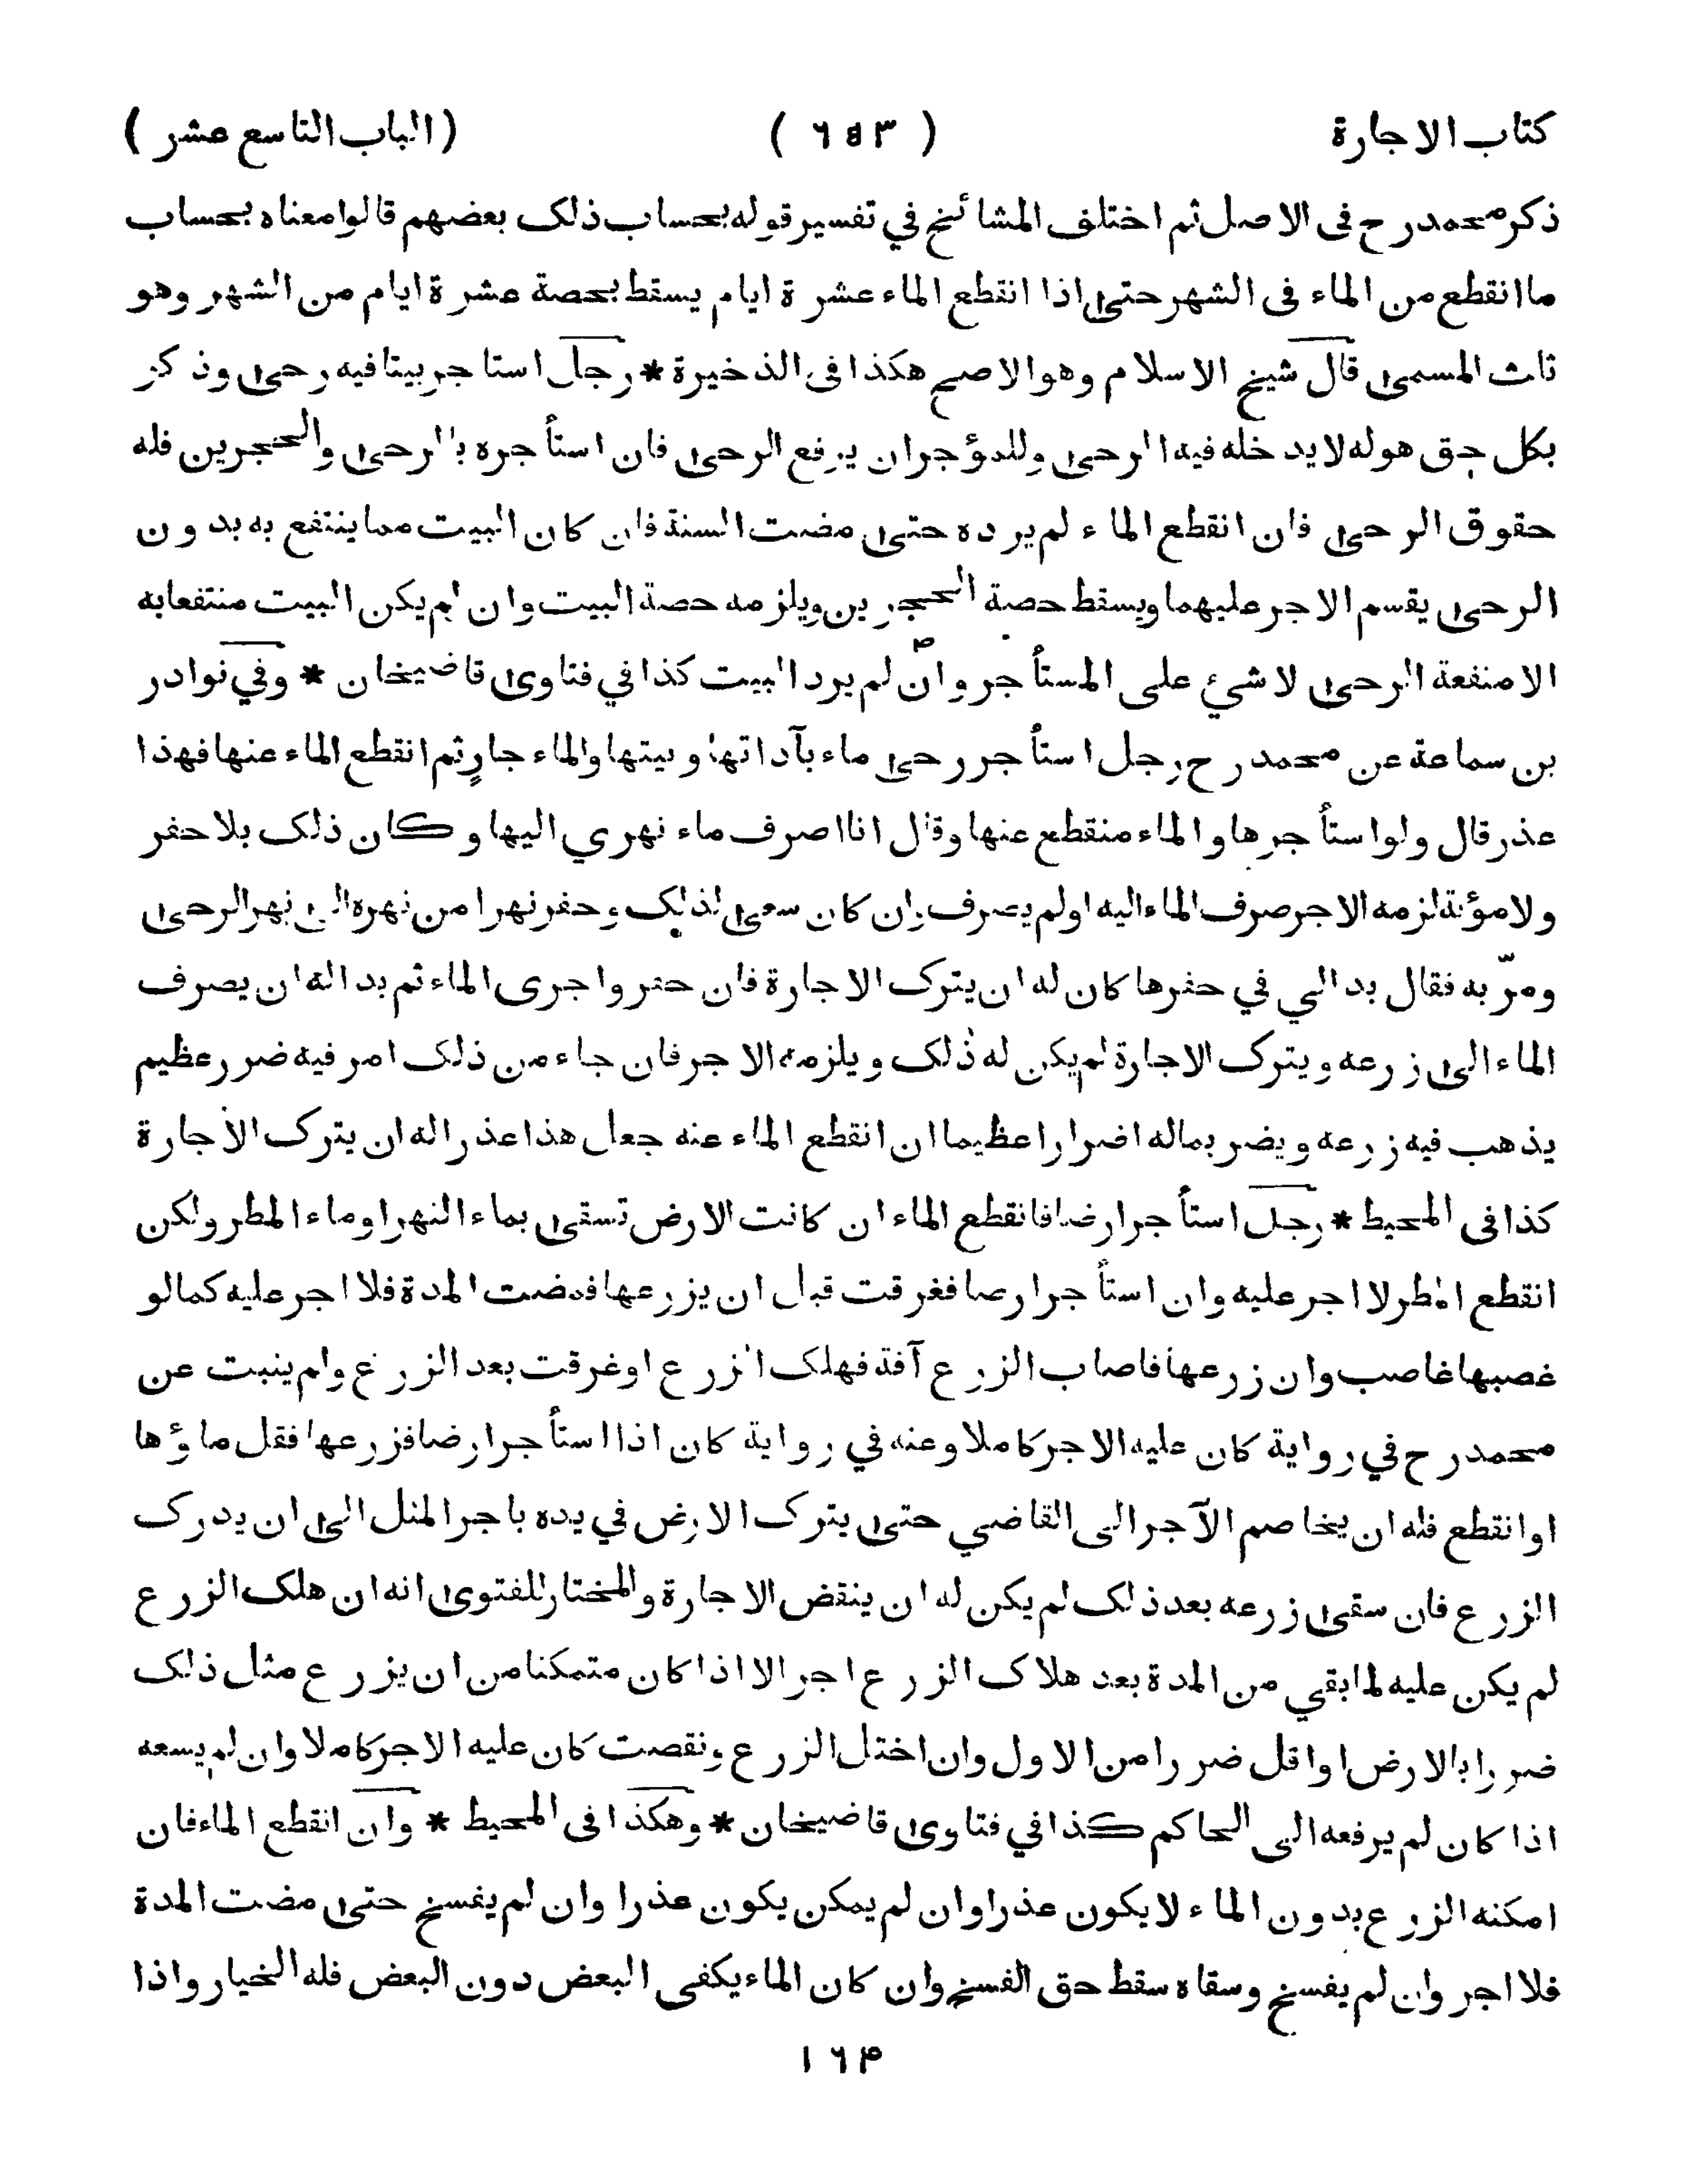 كتاب الاجارة ( ٦٥٣ ) ( الباب التاسع عشر )
ذكر محمد رح فى الاصل ثم اختلف المشائخ في تفسير قوله بحساب ذلك بعضهم قالوا معناه بحساب
ما انقطع من الماء فى الشهر حتى اذا انقطع الماء عشرة ايام يسقط بحصة عشرة ايام من الشهر وهو
ثلث المسمى قال شيخ الاسلام وهو الاصح هكذا فى الذخيرة * رجل استاجر بيتا فيه رحى وذكر
بكل حق هو له لا يدخله فيه الرحى وللمؤجر ان يرفع الرحى فان استأجره بالرحى والحجرين فله
حقوق الرحى فان انقطع الماء لم يرده حتى مضت السنة فان كان البيت مما ينتفع به بدون
الرحى يقسم الاجر عليهما ويسقط حصة الحجرين ويلزمه حصة البيت وان لم يكن البيت منتفعا به
الا منفعة الرحى لا شئ على المستأجر وان لم يرد البيت كذا في فتاوى قاضيخان * وفي نوادر
بن سماعة عن محمد رح رجل استأجر رحى ماء بآداتها وبيتها والماء جارٍ ثم انقطع الماء عنها فهذا
عذر قال ولو استأجرها والماء منقطع عنها وقال انا اصرف ماء نهري اليها وكان ذلك بلا حفر
ولا مؤنة لزمه الاجر صرف الماء اليه اولم يصرف وان كان سعى لذلك وحفر نهرا من نهره الى نهر الرحى
ومرّ به فقال بدا لي في حفرها كان له ان يترك الاجارة فان حفر واجرى الماء ثم بدا له ان يصرف
الماء الى زرعه ويترك الاجارة لم يكن له ذلك ويلزمه الاجر فان جاء من ذلك امر فيه ضرر عظيم
يذهب فيه زرعه ويضر بماله اضرارا عظيما ان انقطع الماء عنه جعل هذا عذرا له ان يترك الاجارة
كذا فى المحيط * رجل استأجر ارضا فانقطع الماء ان كانت الارض تسقى بماء النهر او ماء المطر ولكن
انقطع المطر لا اجر عليه وان استأجر ارضا فغرقت قبل ان يزرعها فمضت المدة فلا اجر عليه كما لو
غصبها غاصب وان زرعها فاصاب الزرع آفة فهلك الزرع او غرقت بعد الزرع ولم ينبت عن
محمد رح في رواية كان عليه الاجر كاملا وعنه في رواية كان اذا استأجر ارضا فزرعها فقل ماؤها
او انقطع فله ان يخاصم الآجر الى القاضي حتى يترك الارض في يده باجر المثل الى ان يدرك
الزرع فان سقى زرعه بعد ذلك لم يكن له ان ينقض الاجارة والمختار للفتوى انه ان هلك الزرع
لم يكن عليه لما بقي من المدة بعد هلاك الزرع اجر الا اذا كان متمكنا من ان يزرع مثل ذلك
ضررا بالارض او اقل ضررا من الاول وان اختل الزرع ونقصت كان عليه الاجر كاملا وان لم يسعه
اذا كان لم يرفعه الى الحاكم كذا في فتاوى قاضيخان * وهكذا فى المحيط * وان انقطع الماء فان
امكنه الزرع بدون الماء لا يكون عذرا وان لم يمكن يكون عذرا وان لم يفسخ حتى مضت المدة
فلا اجر وان لم يفسخ وسقاه سقط حق الفسخ وان كان الماء يكفى البعض دون البعض فله الخيار واذا
١٦۴